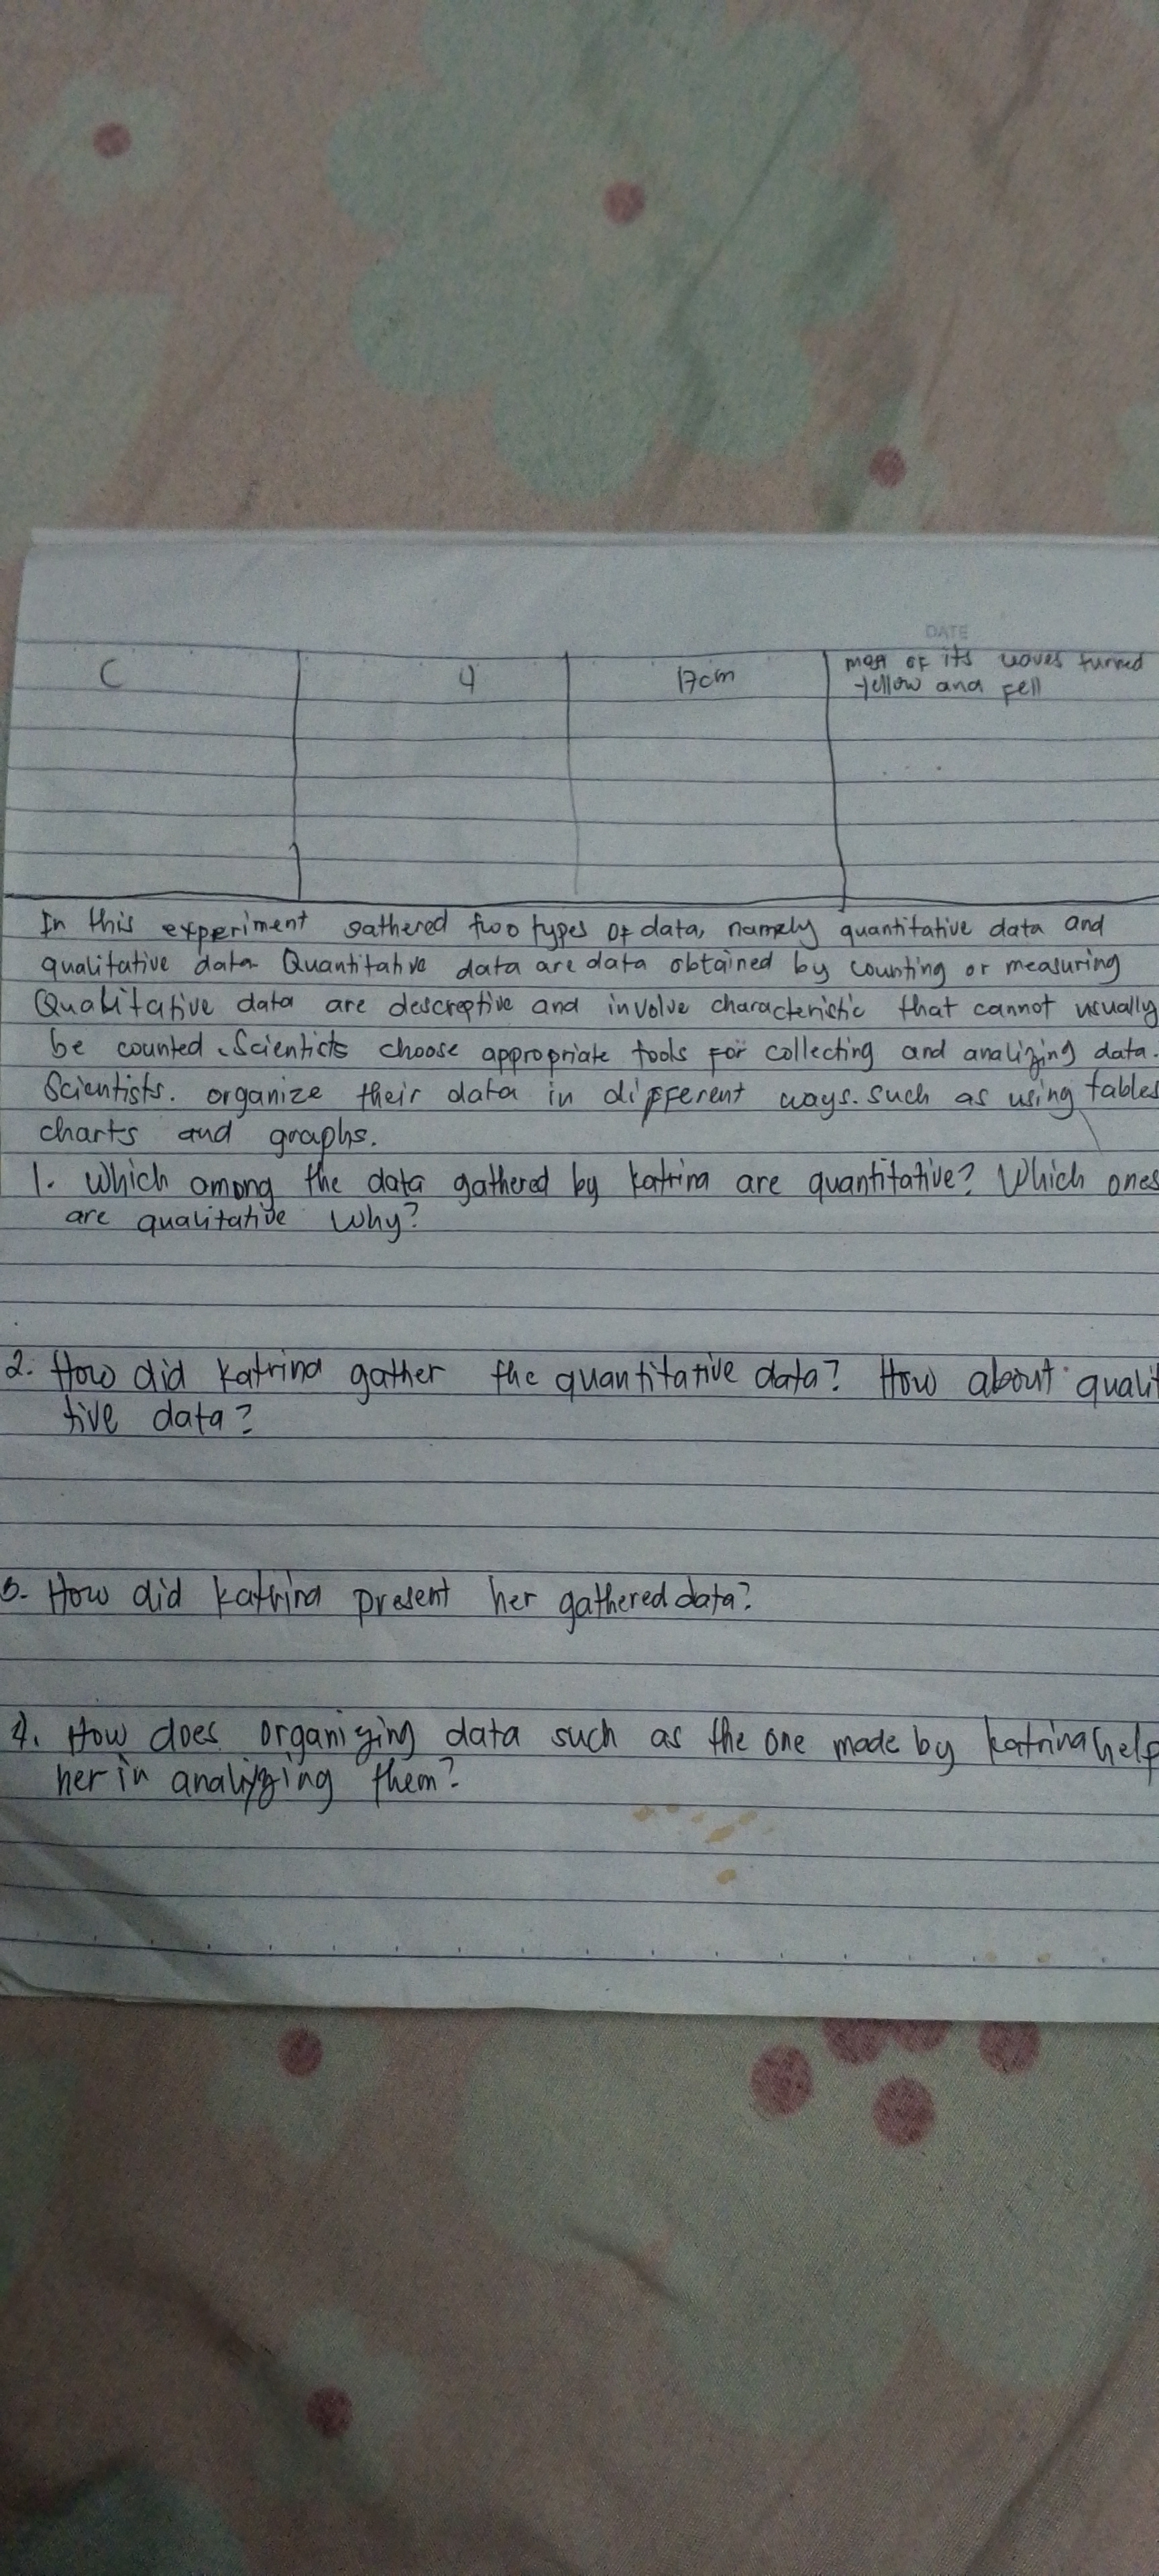 DATE
C 4 17cm most of its leaves turned
yellow and fell
In this experiment gathered two types of data, namely quantitative data and
qualitative data. Quantitative data are data obtained by counting or measuring
Qualitative data are descreptive and involve characteristic that cannot usually
be counted. Scientists choose appropriate tools for collecting and analizing data.
Scientists. organize their data in different ways. such as using tables
charts and graphs.
1. Which among the data gathered by Katrina are quantitative? Which ones
are qualitative Why?
2. How did Katrina gather the quantitative data? How about qualit
tive data?
3. How did Katrina present her gathered data?
4. How does organizing data such as the one made by Katrina help
her in analyzing them?